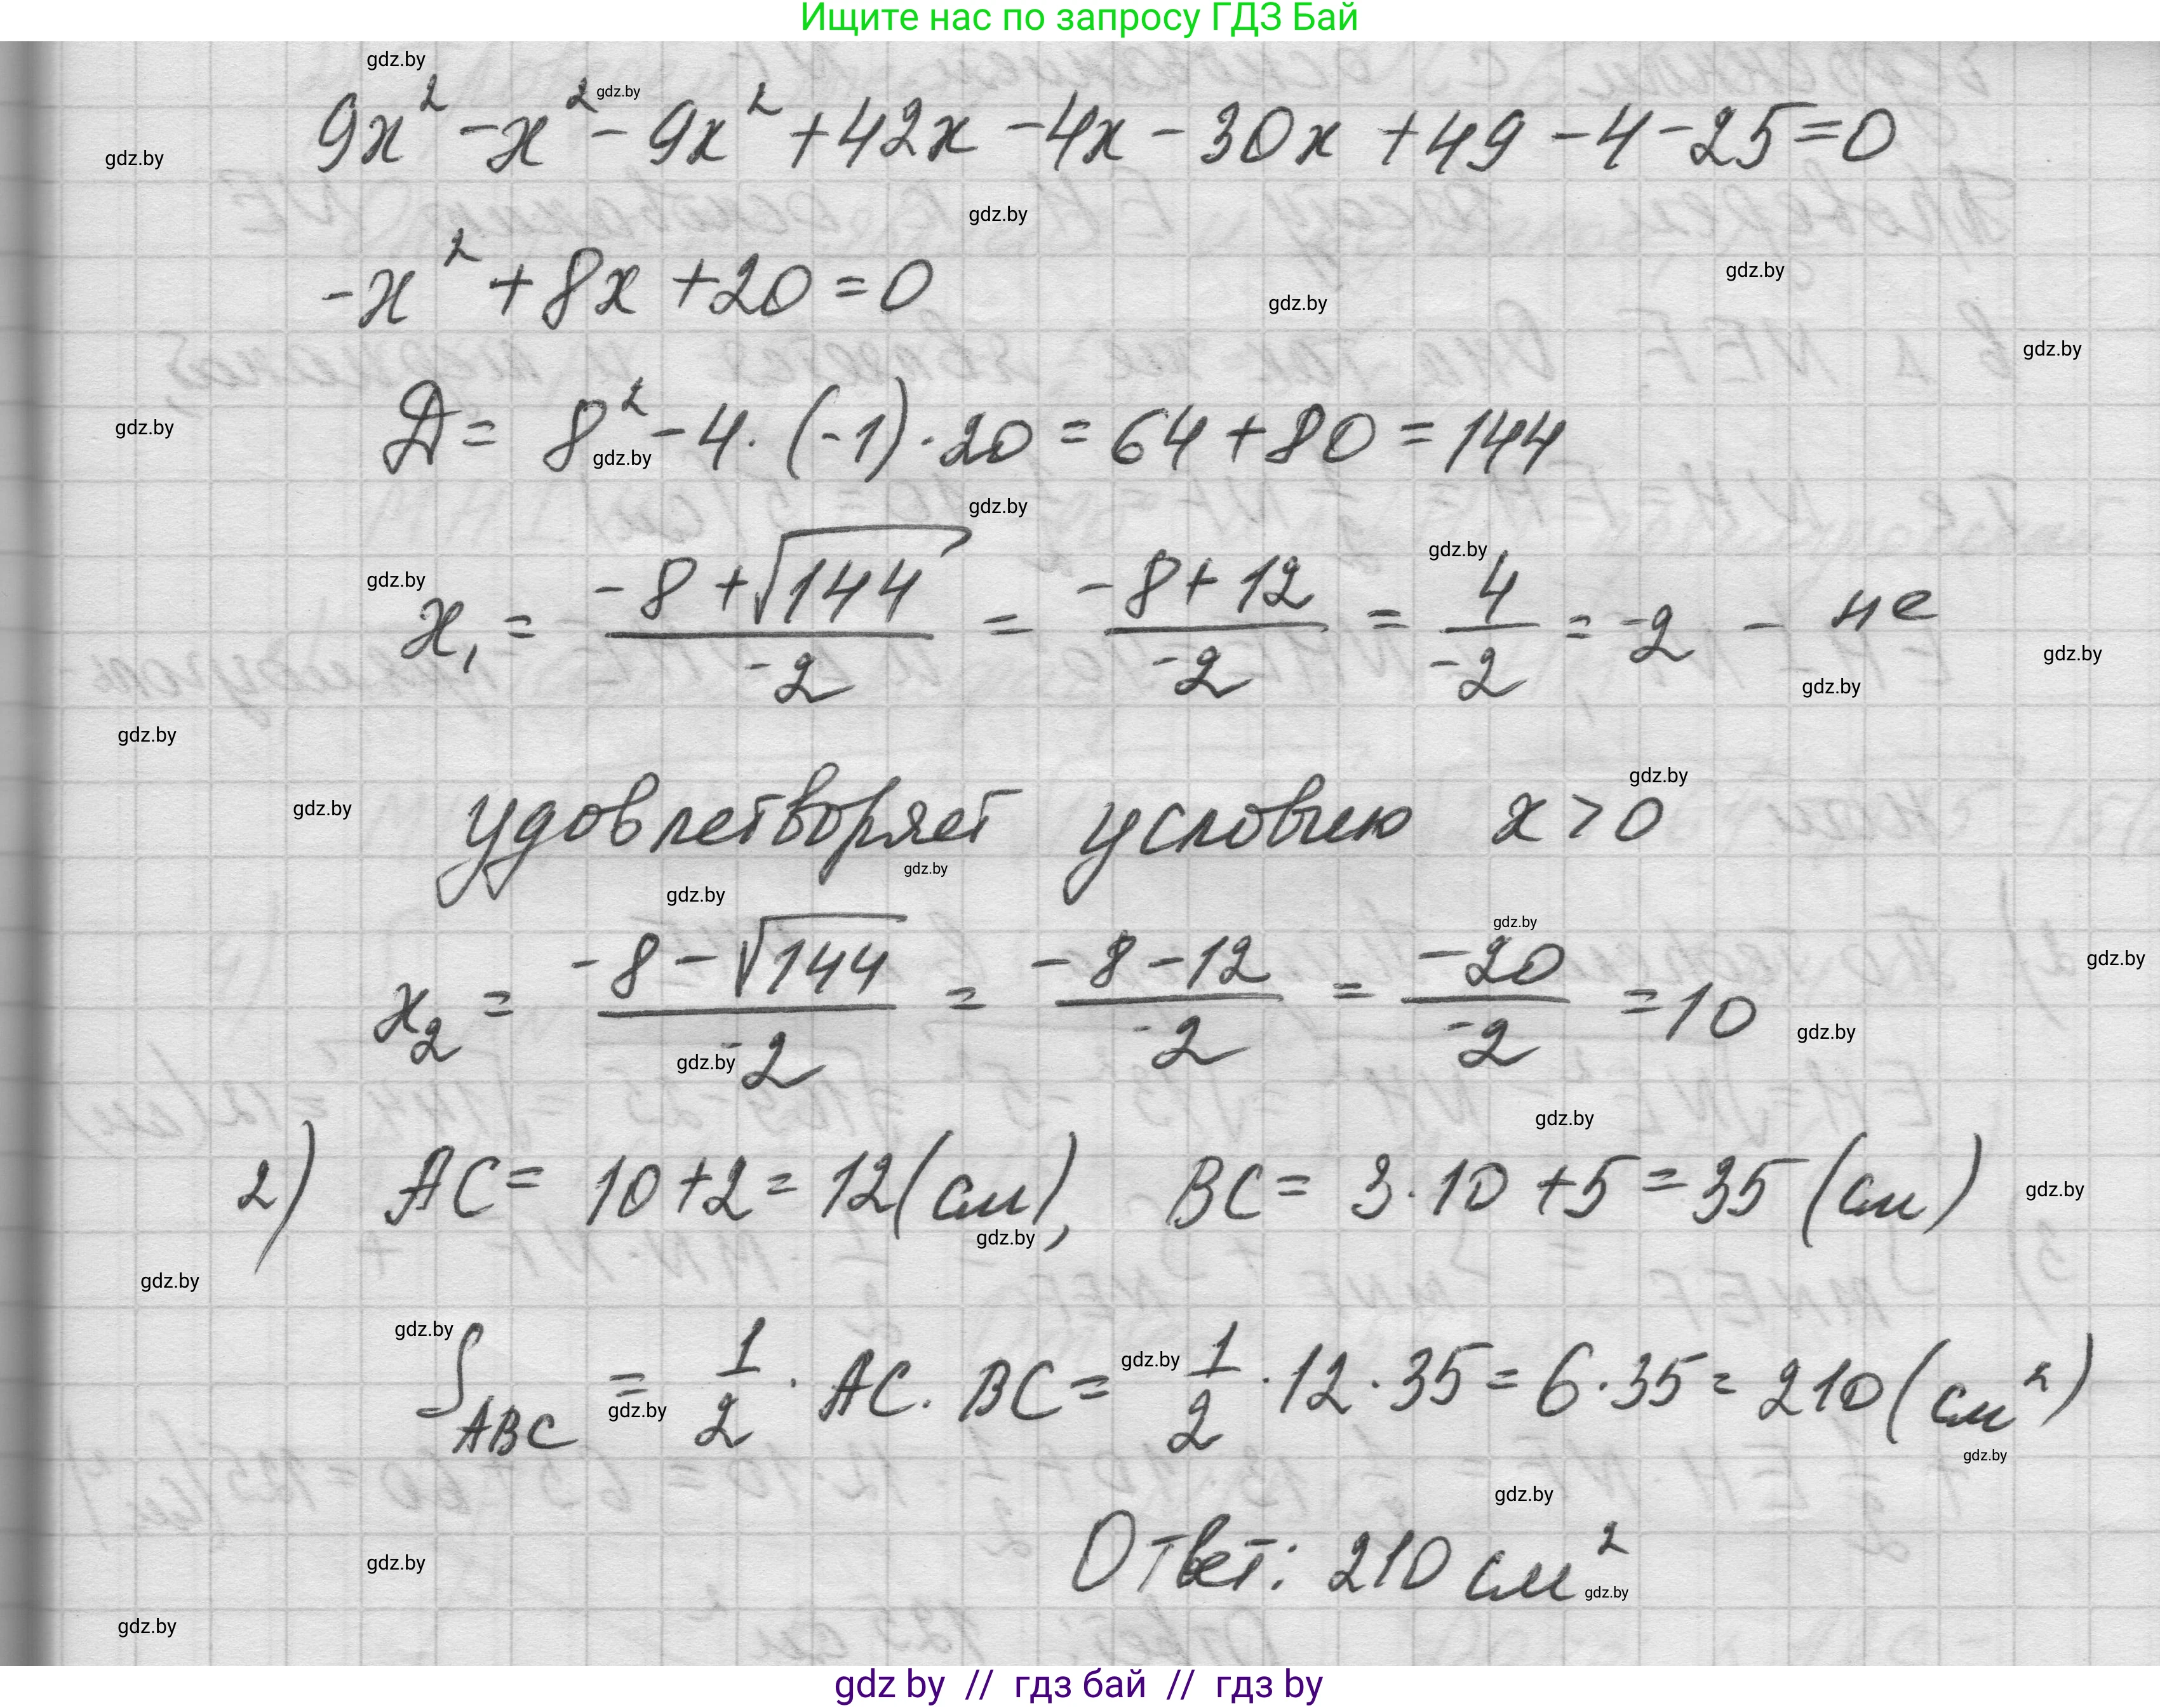 Ищите нас по запросу ГДЗ Бай
gdz.by
9x² - x² - 9x² + 42x - 4x - 30x + 49 - 4 - 25 = 0
-x² + 8x + 20 = 0
Д = 8² - 4 · (-1) · 20 = 64 + 80 = 144
x₁ = (-8 + √144)/(-2) = (-8 + 12)/(-2) = 4/(-2) = -2 - не
удовлетворяет условию x > 0
x₂ = (-8 - √144)/(-2) = (-8 - 12)/(-2) = (-20)/(-2) = 10
2) AC = 10 + 2 = 12 (см), BC = 3 · 10 + 5 = 35 (см)
S_ABC = 1/2 · AC · BC = 1/2 · 12 · 35 = 6 · 35 = 210 (см²)
Ответ: 210 см²
gdz by // гдз бай // гдз by